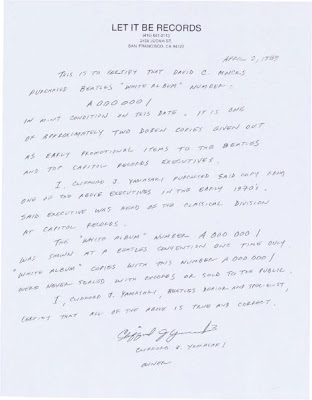 LET IT BE RECORDS
2434 JUDAH ST.
SAN FRANCISCO, CA 94122
APRIL 2, 1989
THIS IS TO CERTIFY THAT DAVID C. MONCKS
PURCHASED BEATLES "WHITE ALBUM" NUMBER:
A 0000001
IN MINT CONDITION ON THIS DATE. IT IS ONE
OF APPROXIMATELY TWO DOZEN COPIES GIVEN OUT
AS EARLY PROMOTIONAL ITEMS TO THE BEATLES
AND TOP CAPITOL RECORDS EXECUTIVES.
I, CLIFFORD J. YAMASAKI PURCHASED SAID COPY FROM
ONE OF THE ABOVE EXECUTIVES IN THE EARLY 1970'S.
SAID EXECUTIVE WAS HEAD OF THE CLASSICAL DIVISION
AT CAPITOL RECORDS.
THE "WHITE ALBUM" NUMBER A 0000001
WAS SHOWN AT A BEATLES CONVENTION ONE TIME ONLY
"WHITE ALBUM" COPIES WITH THIS NUMBER A 0000001
WERE NEVER SEALED WITH RECORDS OR SOLD TO THE PUBLIC.
I, CLIFFORD J. YAMASAKI, BEATLES DEALER AND SPECIALIST,
CERTIFY THAT ALL OF THE ABOVE IS TRUE AND CORRECT.
CLIFFORD J. YAMASAKI
OWNER